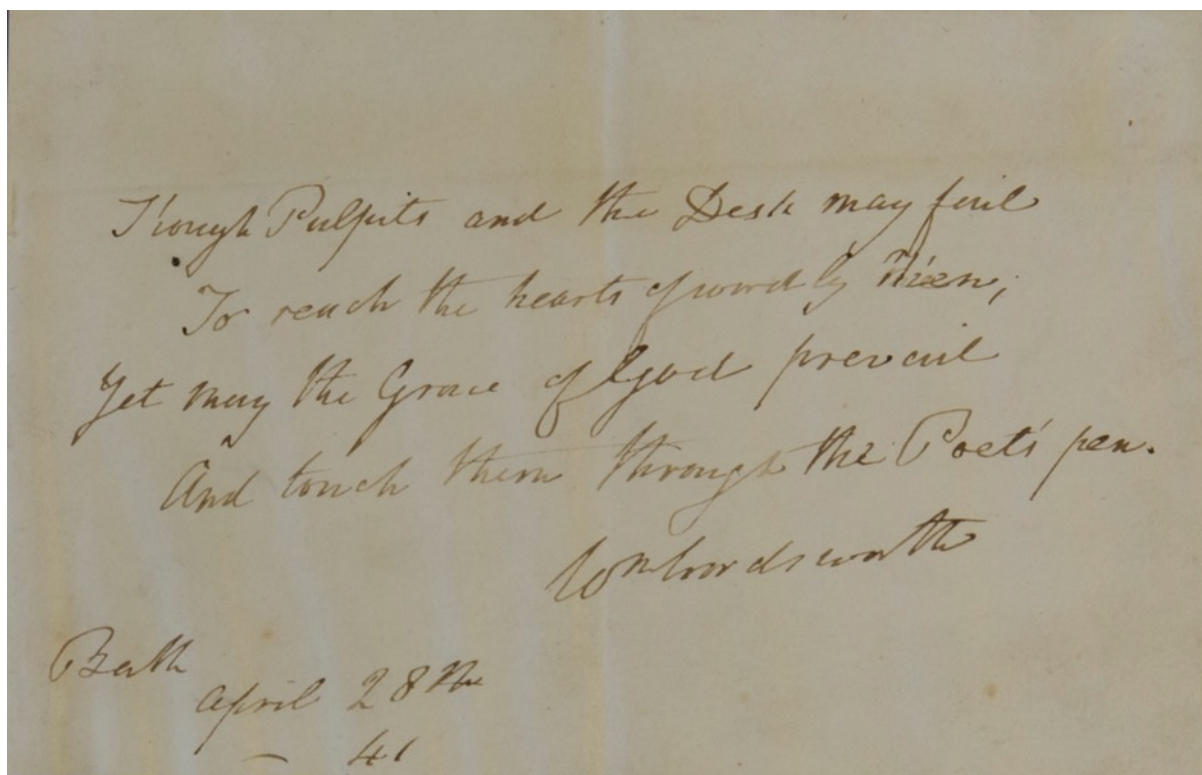 Though Pulpits and the Desk may fail
To reach the hearts of wordly Men;
Yet may the Grace of God prevail
And touch them through the Poet's pen.
Wm Wordsworth
Bath
April 28th
— 41